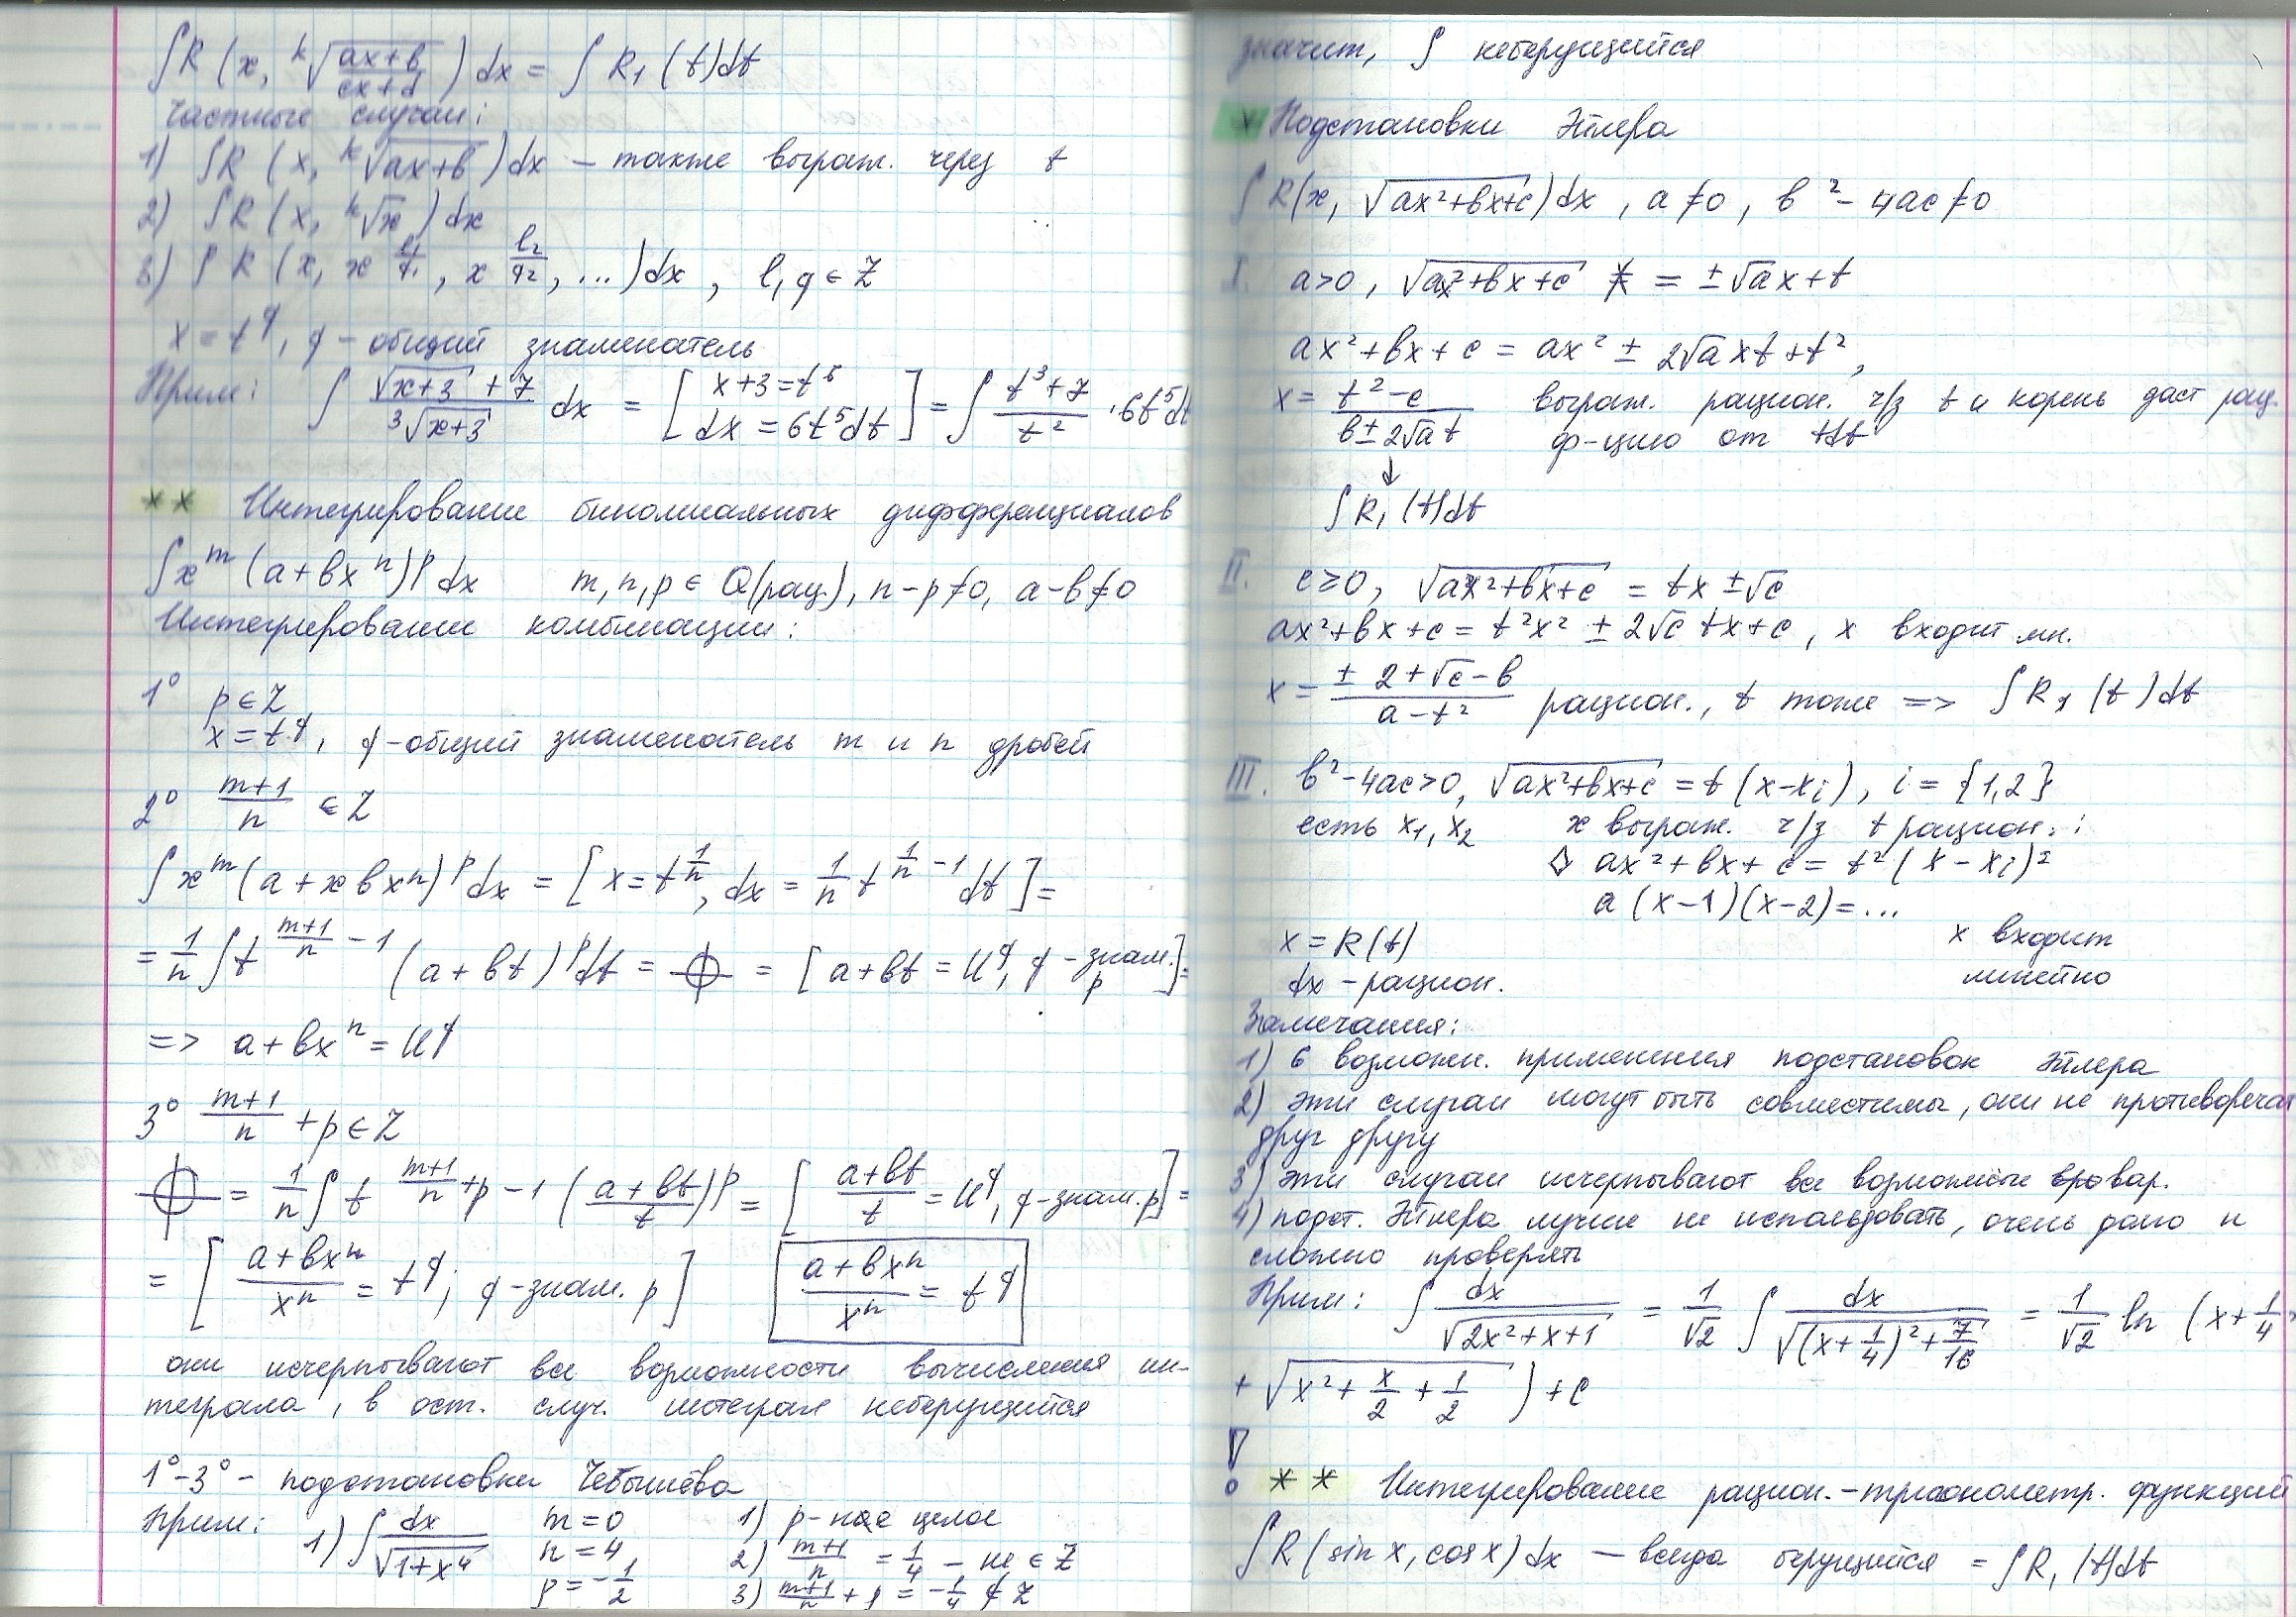 ∫R(x, ᵏ√((ax+b)/(cx+d)))dx = ∫R₁(t)dt
Частные случаи:
1) ∫R(x, ᵏ√(ax+b))dx – также выраж. через t
2) ∫R(x, ᵏ√x)dx
3) ∫R(x, x^(l₁/q₁), x^(l₂/q₂), ...)dx, l, q ∈ Z
x = t^q, q – общий знаменатель
Прим: ∫ (√(x+3) + 7)/(³√(x+3)) dx = [x+3 = t⁶, dx = 6t⁵dt] = ∫ (t³+7)/t² · 6t⁵dt
** Интегрирование биномиальных дифференциалов
∫x^m (a+bx^n)^p dx m, n, p ∈ Q(рац.), n-p≠0, a-b≠0
Интегрирование комбинации:
1° p ∈ Z
x = t^q, q – общий знаменатель m и n дробей
2° (m+1)/n ∈ Z
∫x^m (a+xbx^n)^p dx = [x = t^(1/n), dx = 1/n t^(1/n - 1) dt] =
= 1/n ∫t^((m+1)/n - 1) (a+bt)^p dt = ⌽ = [a+bt = u^q, q – знам. p] =
=> a+bx^n = u^q
3° (m+1)/n + p ∈ Z
⌽ = 1/n ∫ t^((m+1)/n + p - 1) ((a+bt)/t)^p = [(a+bt)/t = u^q, q – знам. p] =
= [(a+bx^n)/x^n = t^q; q – знам. p] (a+bx^n)/x^n = t^q
они исчерпывают все возможности вычисления ин-
теграла, в ост. случ. интеграл неберущийся
1°-3° – подстановки Чебышёва
Прим: 1) ∫dx/√(1+x⁴) m=0 1) p – не целое
n=4 2) (m+1)/n = 1/4 – не ∈ Z
p = -1/2 3) (m+1)/n + p = -1/4 ∉ Z
значит, ∫ неберущийся
* Подстановки Эйлера
∫R(x, √(ax²+bx+c))dx, a≠0, b²-4ac≠0
I. a>0, √(ax²+bx+c) = ±√a x+t
ax²+bx+c = ax² ± 2√a xt + t²,
x = (t²-c)/(b±2√a t) выраж. рацион. ч/з t и корень даст рац.
ф-цию от tdt
↓
∫R₁(t)dt
II. c≥0, √(ax²+bx+c) = tx ±√c
ax²+bx+c = t²x² ± 2√c tx+c, x входит лин.
x = (± 2t√c - b)/(a-t²) рацион., t тоже => ∫R₁(t)dt
III. b²-4ac>0, √(ax²+bx+c) = t(x-xᵢ), i = {1,2}
есть x₁, x₂ x выраж. ч/з t рацион.:
◊ ax²+bx+c = t²(x-xᵢ)²
a(x-1)(x-2)=...
x = R(t) x входит
dx – рацион. линейно
Замечания:
1) 6 возможн. применения подстановок Эйлера
2) эти случаи могут быть совместимы, они не противоречат
друг другу
3) эти случаи исчерпывают все возможные вар.
4) подст. Эйлера лучше не использовать, очень долго и
сложно проверять
Прим: ∫dx/√(2x²+x+1) = 1/√2 ∫dx/√((x+1/4)²+7/16) = 1/√2 ln (x+1/4 +
+ √(x²+x/2+1/2)) + c
! ** Интегрирование рацион.-тригонометр. функций
∫R(sin x, cos x)dx – всегда берущийся = ∫R₁(t)dt